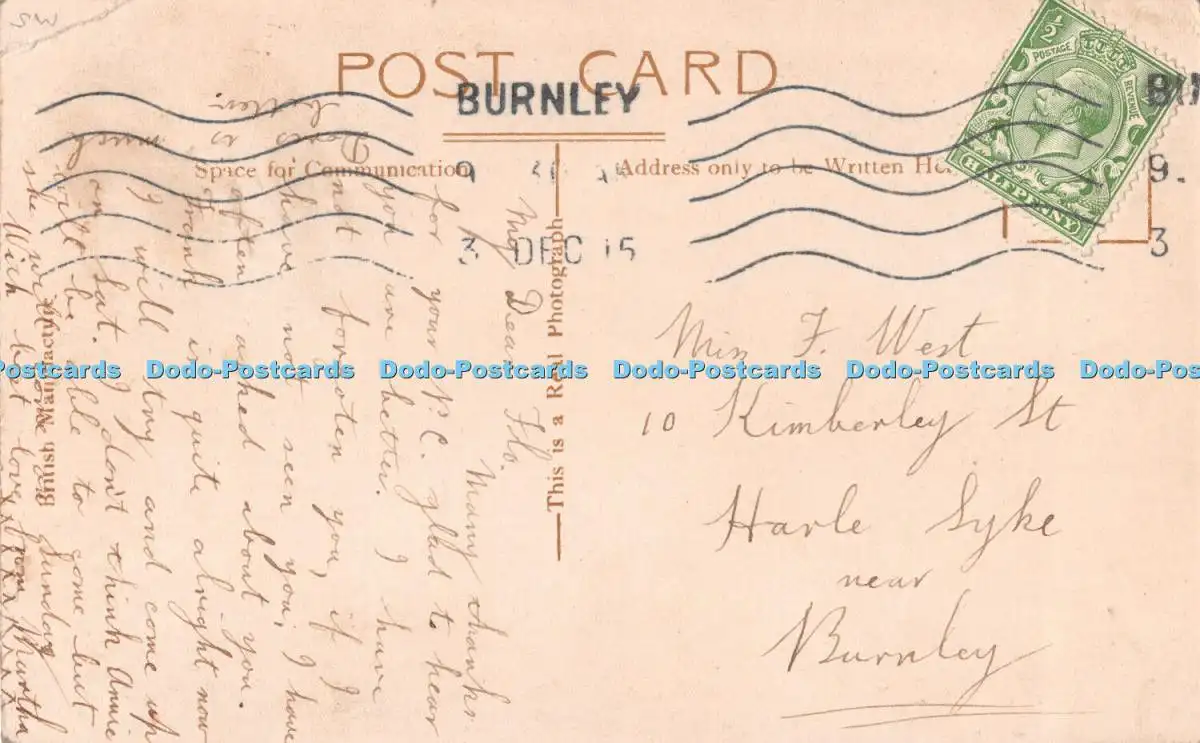 POST CARD
BURNLEY
BU
Space for Communication
Address only to be Written He
9
3 DEC 15
9.
3
½
POSTAGE
REVENUE
HALFPENNY
This is a Real Photograph
British Manufacture
My Dear Flo.
Many thanks
for your P.C. glad to hear
you are better. I have
not forgotten you, if I
have not seen you, I have
often asked about you.
Frank is quite alright now
I will try and come up
on Sat. I don't think Annie
will be able to come but
she will
Sunday
With best love from Martha
x x x x
Miss F. West
10 Kimberley St
Harle Syke
near
Burnley
Dodo-Postcards Dodo-Postcards Dodo-Postcards Dodo-Postcards Dodo-Pos